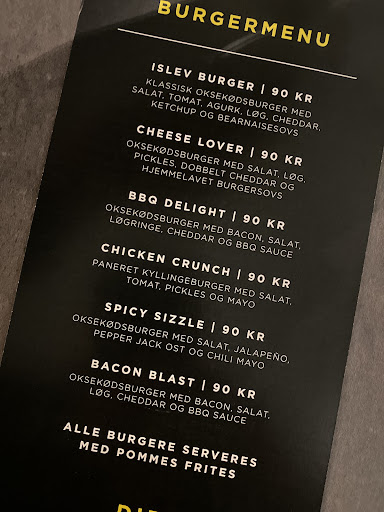 BURGERMENU
ISLEV BURGER | 90 KR
KLASSISK OKSEKØDSBURGER MED
SALAT, TOMAT, AGURK, LØG, CHEDDAR,
KETCHUP OG BEARNAISESOVS
CHEESE LOVER | 90 KR
OKSEKØDSBURGER MED SALAT, LØG,
PICKLES, DOBBELT CHEDDAR OG
HJEMMELAVET BURGERSOVS
BBQ DELIGHT | 90 KR
OKSEKØDSBURGER MED BACON, SALAT,
LØGRINGE, CHEDDAR OG BBQ SAUCE
CHICKEN CRUNCH | 90 KR
PANERET KYLLINGEBURGER MED SALAT,
TOMAT, PICKLES OG MAYO
SPICY SIZZLE | 90 KR
OKSEKØDSBURGER MED SALAT, JALAPEÑO,
PEPPER JACK OST OG CHILI MAYO
BACON BLAST | 90 KR
OKSEKØDSBURGER MED BACON, SALAT,
LØG, CHEDDAR OG BBQ SAUCE
ALLE BURGERE SERVERES
MED POMMES FRITES